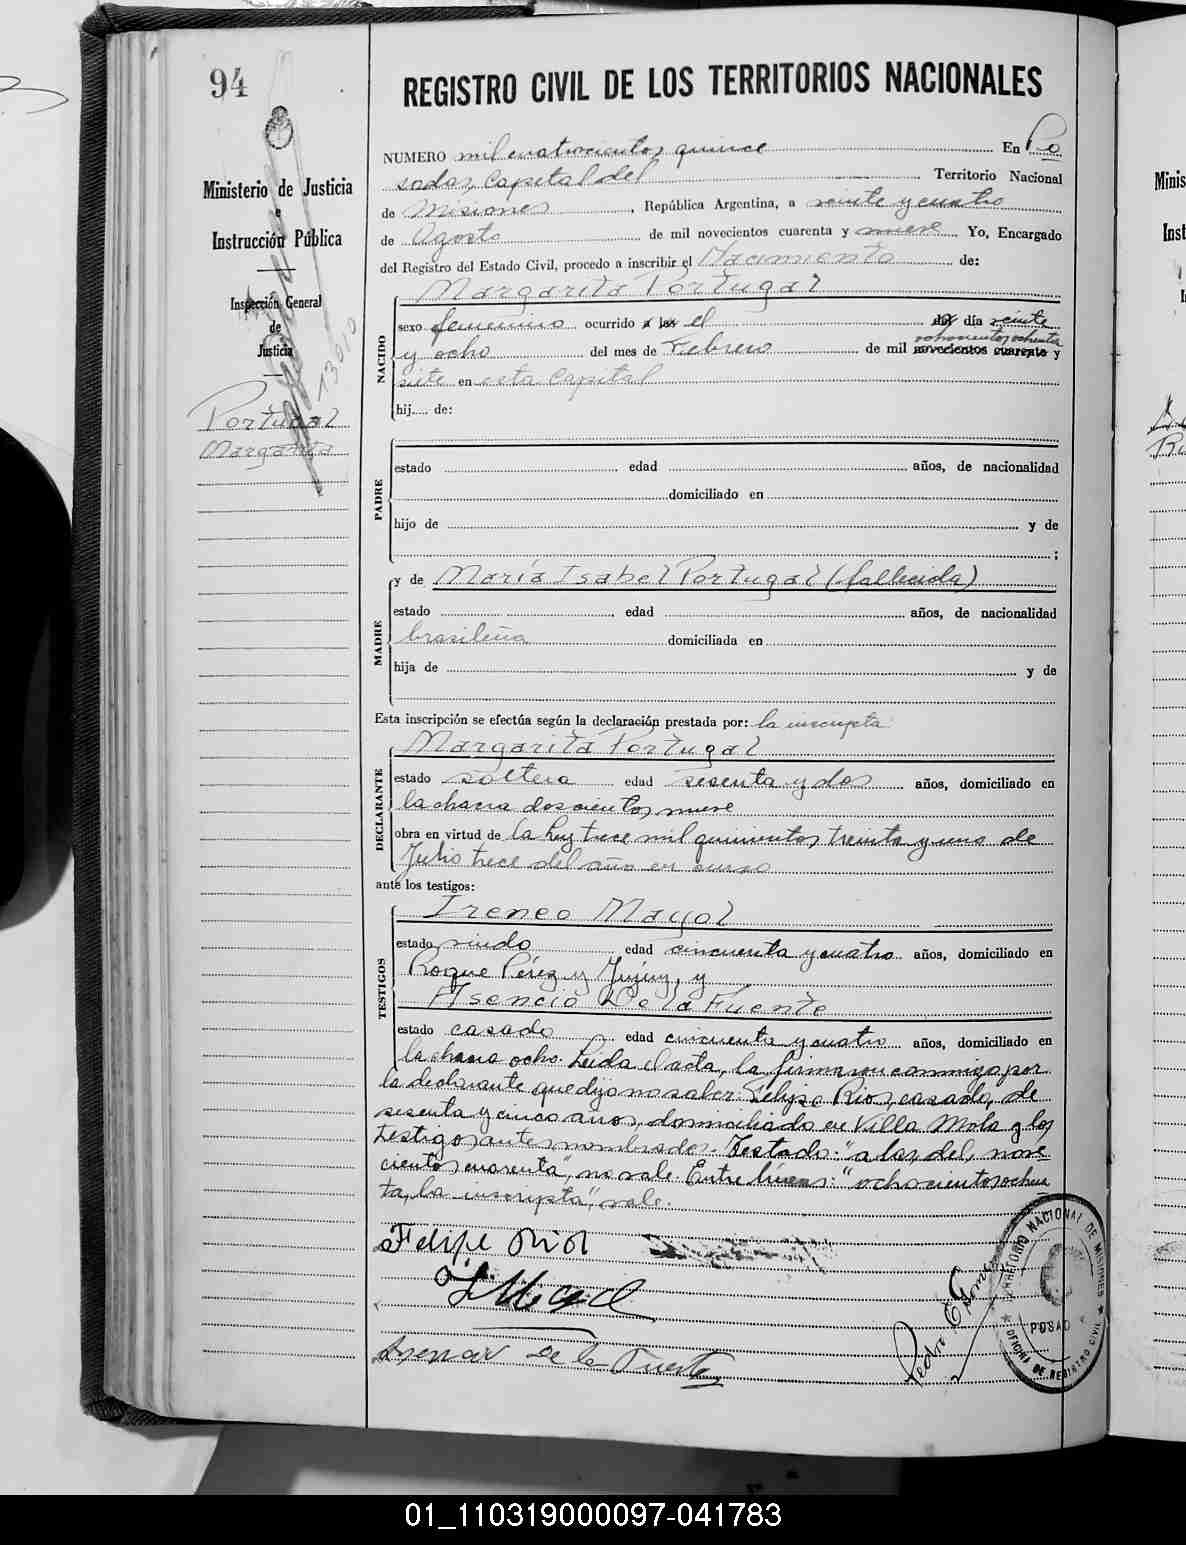 94
REGISTRO CIVIL DE LOS TERRITORIOS NACIONALES
Ministerio de Justicia
e
Instrucción Pública
Inspección General
de
Justicia
Portugal
Margarita
NUMERO mil cuatrocientos quince En Po
sadas, Capital del Territorio Nacional
de Misiones, República Argentina, a veinte y cuatro
de Agosto de mil novecientos cuarenta y nueve. Yo, Encargado
del Registro del Estado Civil, procedo a inscribir el Nacimiento de:
NACIDO
Margarita Portugal
sexo femenino ocurrido a las el del día veinte
ochocientos ochenta
y ocho del mes de Febrero de mil novecientos cuarenta y
siete en esta Capital
hij.... de:
PADRE
estado edad años, de nacionalidad
domiciliado en
hijo de y de
;
MADRE
y de María Isabel Portugal (fallecida)
estado edad años, de nacionalidad
brasileña domiciliada en
hija de y de
Esta inscripción se efectúa según la declaración prestada por: la inscripta
DECLARANTE
Margarita Portugal
estado soltera edad sesenta y dos años, domiciliado en
la chacra doscientos nueve
obra en virtud de la ley trece mil quinientos treinta y uno de
Julio trece del año en curso
ante los testigos:
TESTIGOS
Ireneo Mayol
estado viudo edad cincuenta y cuatro años, domiciliado en
Roque Pérez y Jujuy, y
Asencio De la Fuente
estado casado edad cincuenta y cuatro años, domiciliado en
la chacra ocho. Leida el acta, la firmaron conmigo, por
la declarante que dijo no saber: Felipe Rios, casado, de
sesenta y cinco años, domiciliado en Villa Mola y los
testigos antes nombrados. Testado: "a las, del, nove
cientos cuarenta", no vale. Entre líneas: "ochocientos ochen
ta, la inscripta", vale.
Felipe Rios
De la Fuente
Pedro
TERRITORIO NACIONAL DE MISIONES
POSADAS
OFICINA DE REGISTRO CIVIL
01_110319000097-041783